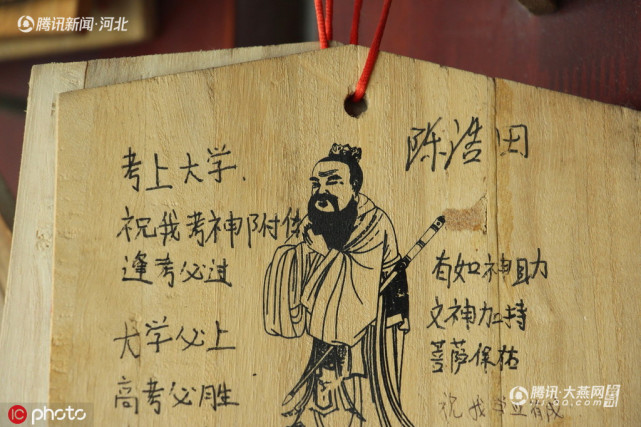 腾讯新闻·河北
陈浩田
考上大学.
祝我考神附体
逢考必过
大学必上
高考必胜
有如神助
文神加持
菩萨保祐
祝我学业有成
iC photo
腾讯·大燕网